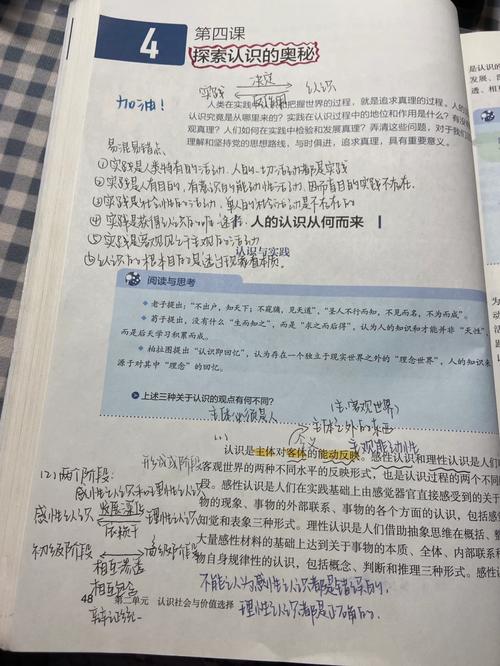 4
第四课
探索认识的奥秘
决定
实践 认识
反作用
加油!
人类在实践中把握世界的过程,就是追求真理的过程。人的
认识究竟是从哪里来的?实践在认识过程中的地位和作用是什么?有没
观真理?人们如何在实践中检验和发展真理?弄清这些问题,对于我们
理解和坚持党的思想路线,与时俱进,追求真理,具有重要意义。
易混易错点、
①实践是人类特有的活动,人的一切活动都是实践
②实践是有目的,有意识的能动性活动,因而盲目的实践不存在.
③实践是社会性的活动,单人的 活动是不存在的
④实践是获得认识的 途径
人的认识从何而来
⑤实践是客观见之于主观的活动
认识与实践
⑥认识的根本目的是透过现象看本质。
阅读与思考
● 老子提出:“不出户,知天下;不窥牖,见天道”,“圣人不行而知,不见而名,不为而成”。
● 荀子提出,没有什么“生而知之”,而是“求之而后得”,认为人的知识和才能并非“天性”,
而是后天学习积累而成。
● 柏拉图提出“认识即回忆”,认为存在一个独立于现实世界之外的“理念世界”,人的知识来
源于对其中“理念”的回忆。
上述三种关于认识的观点有何不同?
主体必须是人
(主、客观世界)
主体之外的东西
(1)
认识是主体对客体的能动反映。感性认识和理性认识是人们
主观能动性
(2)两个阶段:
客观世界的两种不同水平的反映形式,也是认识过程的两个不同
感性认识和理性认识
段。感性认识是人们在实践基础上由感觉器官直接感受到的关于
物的现象、事物的外部联系、事物的各个方面的认识,包括感
感性认识 发展深化 理性认识
依赖于
知觉和表象三种形式。理性认识是人们借助抽象思维在概括、整
大量感性材料的基础上达到关于事物的本质、全体、内部联系和
初级阶段 高级阶段
物自身规律性的认识,包括概念、判断和推理三种形式。感性认
相互渗透
相互包含
不能认为感性认识都是错误的,
理性认识都是正确的.
48 第二单元 认识社会与价值选择
辩证统一